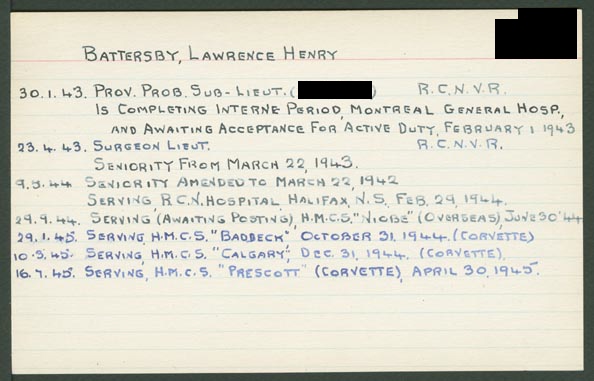 BATTERSBY, LAWRENCE HENRY
30.1.43. PROV. PROB. SUB-LIEUT. ( ) R.C.N.V.R.
IS COMPLETING INTERNE PERIOD, MONTREAL GENERAL HOSP.,
AND AWAITING ACCEPTANCE FOR ACTIVE DUTY, FEBRUARY 1 1943
23.4.43. SURGEON LIEUT. R.C.N.V.R.
SENIORITY FROM MARCH 22, 1943.
9.3.44 SENIORITY AMENDED TO MARCH 22, 1942
SERVING R.C.N. HOSPITAL HALIFAX, N.S. FEB. 29, 1944.
29.9.44. SERVING (AWAITING POSTING), H.M.C.S. "NIOBE" (OVERSEAS), JUNE 30 '44
29.1.45. SERVING, H.M.C.S. "BADDECK" OCTOBER 31, 1944. (CORVETTE)
10.3.45. SERVING, H.M.C.S. "CALGARY", DEC. 31, 1944. (CORVETTE).
16.7.45. SERVING, H.M.C.S. "PRESCOTT" (CORVETTE), APRIL 30, 1945.